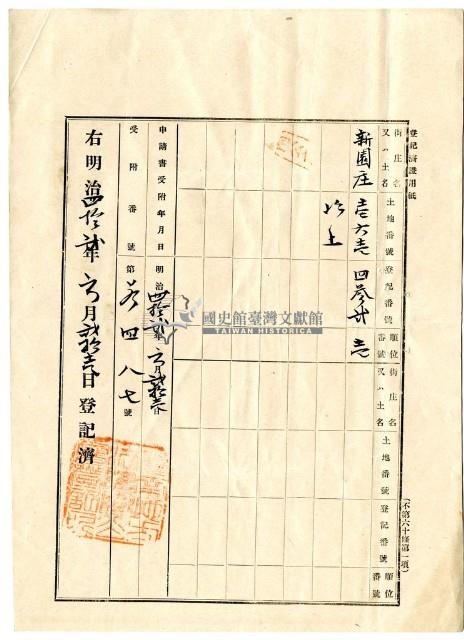 登記済證用紙
街庄名又ハ土名
土地番號
登記番號
順位番號
街庄名又ハ土名
土地番號
登記番號
順位番號
(不第六十條第一項)
新園庄
壱六壱
四參弐
壱
以上
申請書受附年月日
明治四拾弐年六月弐拾壱日
受附番號
第 四八七號
右明治四拾弐年六月弐拾壱日登記濟
國史館臺灣文獻館
TAIWAN HISTORICA